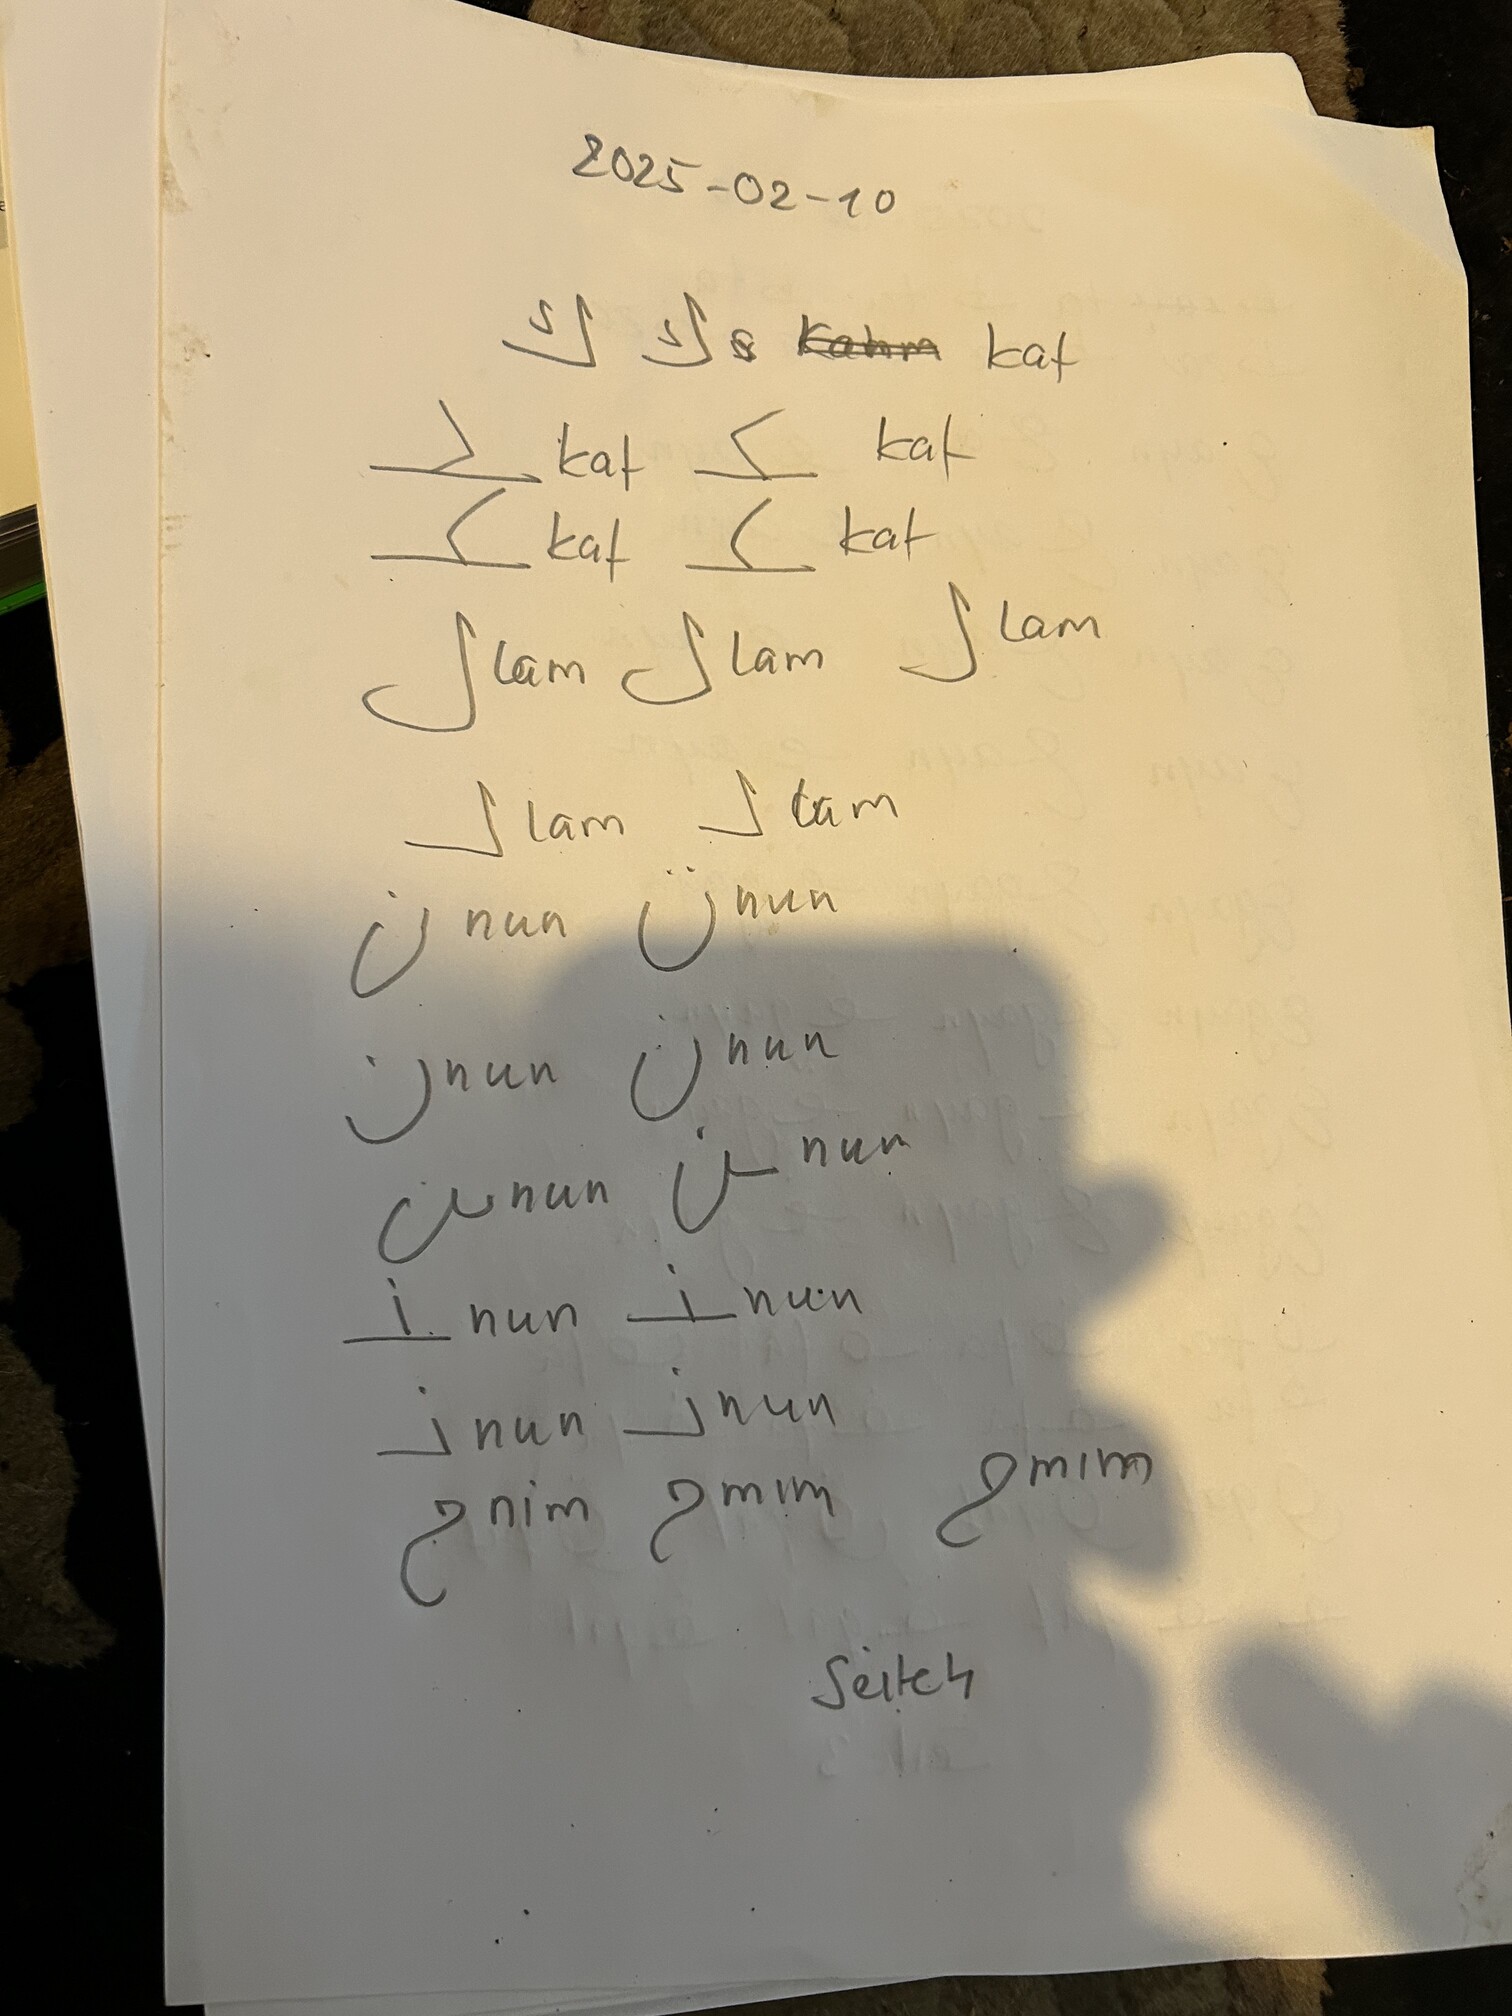 2025-02-10
ك ك kaf
ک kaf ک kaf
ک kaf ک kaf
ل lam ل lam ل lam
ل lam ل lam
ن nun ن nun
ن nun ن nun
ن nun ن nun
ن nun ن nun
ن nun ن nun
م nim م mim م mim
Seite 4